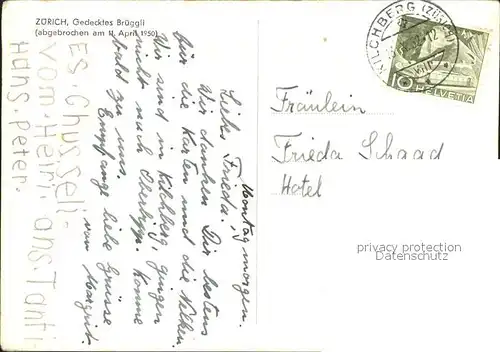 ZÜRICH, Gedecktes Brüggli
(abgebrochen am 11. April 1950)
Montag morgen.
Liebe Frieda,
Wir danken Dir bestens
für die Karten und die Nelken.
Wir sind in Kilchberg, gingen
nicht nach Oberhipp. Komme
bald zu uns.
Empfange liebe Grüsse
von Margrit.
ES. Chusseli-
vom. Heiri. ans. Tanti
Hans. Peter.
KILCHBERG (ZÜRICH)
10 HELVETIA
Fräulein
Frieda Schaad
Hotel
privacy protection
Datenschutz